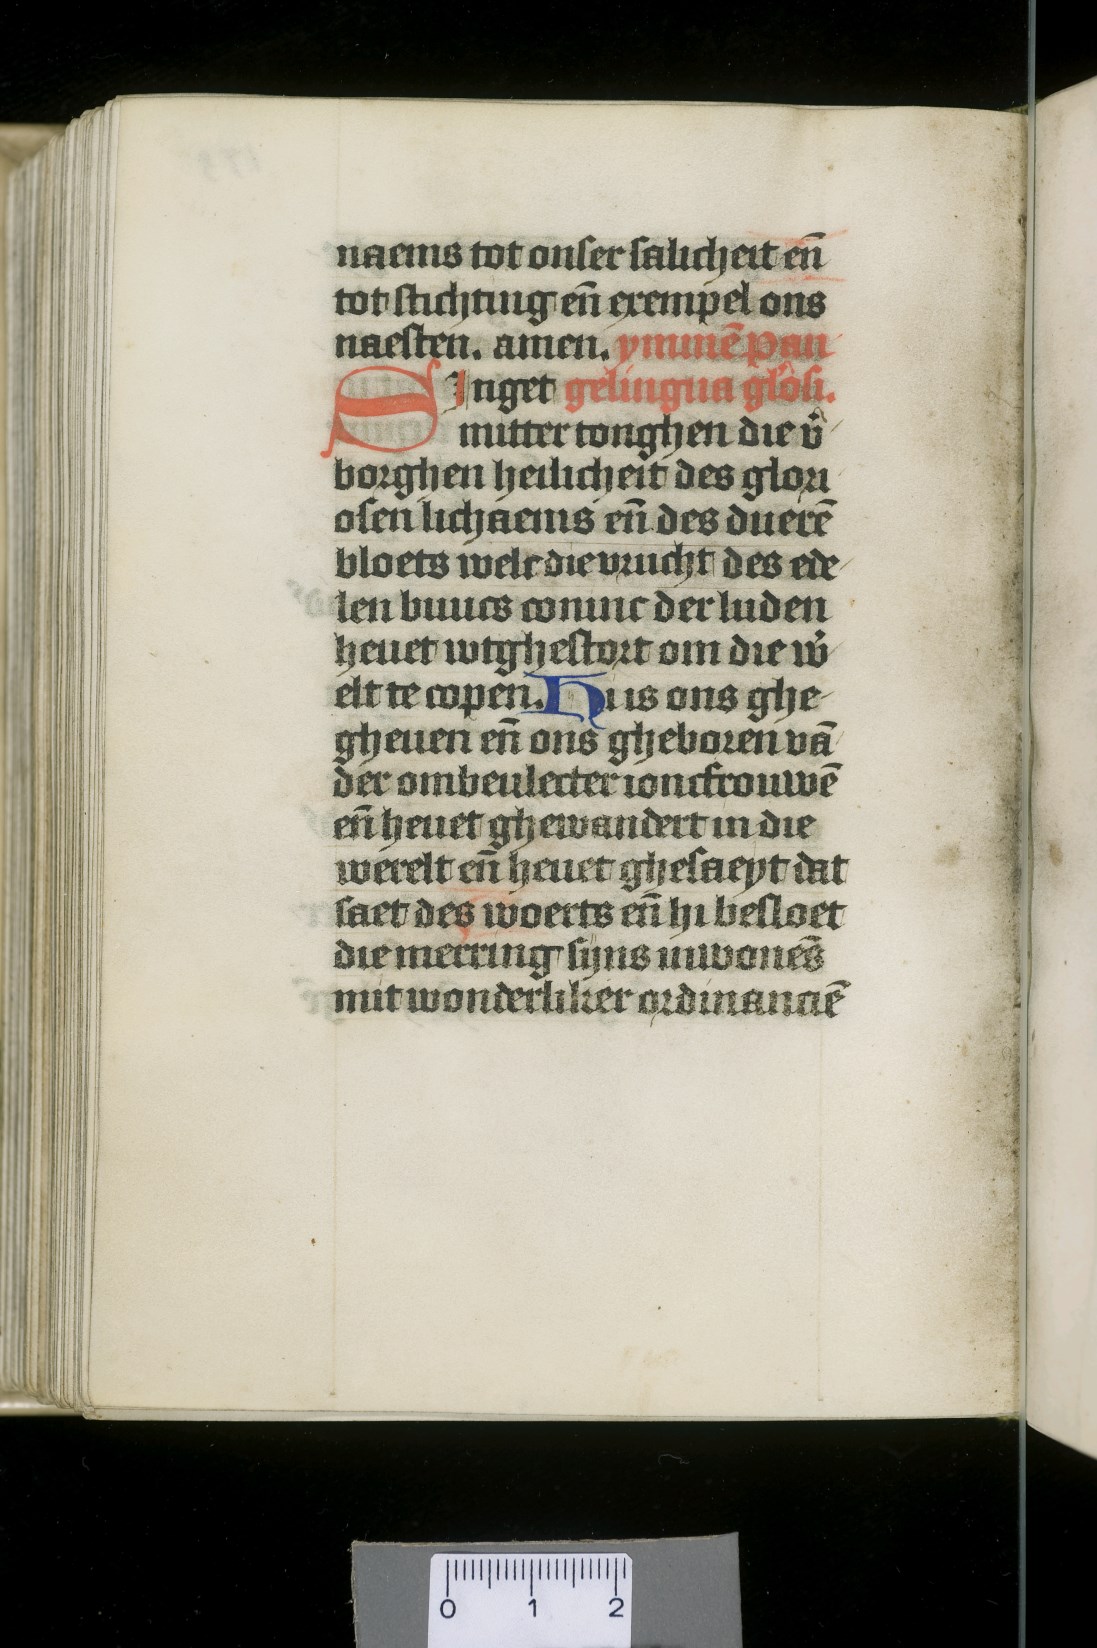 naems tot onser salicheit en̄
tot stichting en̄ exempel ons
naesten. amen. ymmē pan
SInget gelingua gl'osi.
mitter tonghen die v̓
borghen heilicheit des glori
osen lichaems en̄ des duerē
bloets welc die vrucht des ede
len buucs coninc der luden
heuet wtghestort om die w̓
elt te copen. Hi is ons ghe
gheuen en̄ ons gheboren vā
der ombeulecter ioncfrouwē
en̄ heuet ghewandert in die
werelt en̄ heuet ghesaeyt dat
saet des woerts en̄ hi besloet
die merring sijns inwonēs
mit wonderliker ordinanciē
0 1 2